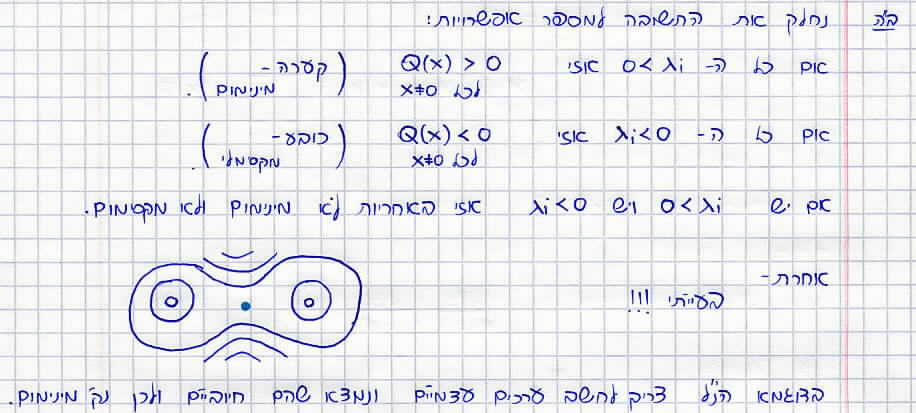 ב"ה נחלק את התשובה למספר אפשרויות:
אם כל ה- 0<λi אזי Q(x) > 0 לכל x≠0 (קערה - מינימום).
אם כל ה- λi<0 אזי Q(x) < 0 לכל x≠0 (כובע - מקסמלי).
אם יש 0<λi ויש λi<0 אזי האחריות לא מינימום ולא מקסימום.
אחרת -
בעייתי !!!
בדוגמא הנ"ל צריך לחשב ערכים עצמיים ונמצא שהם חיוביים ולכן נק' מינימום.